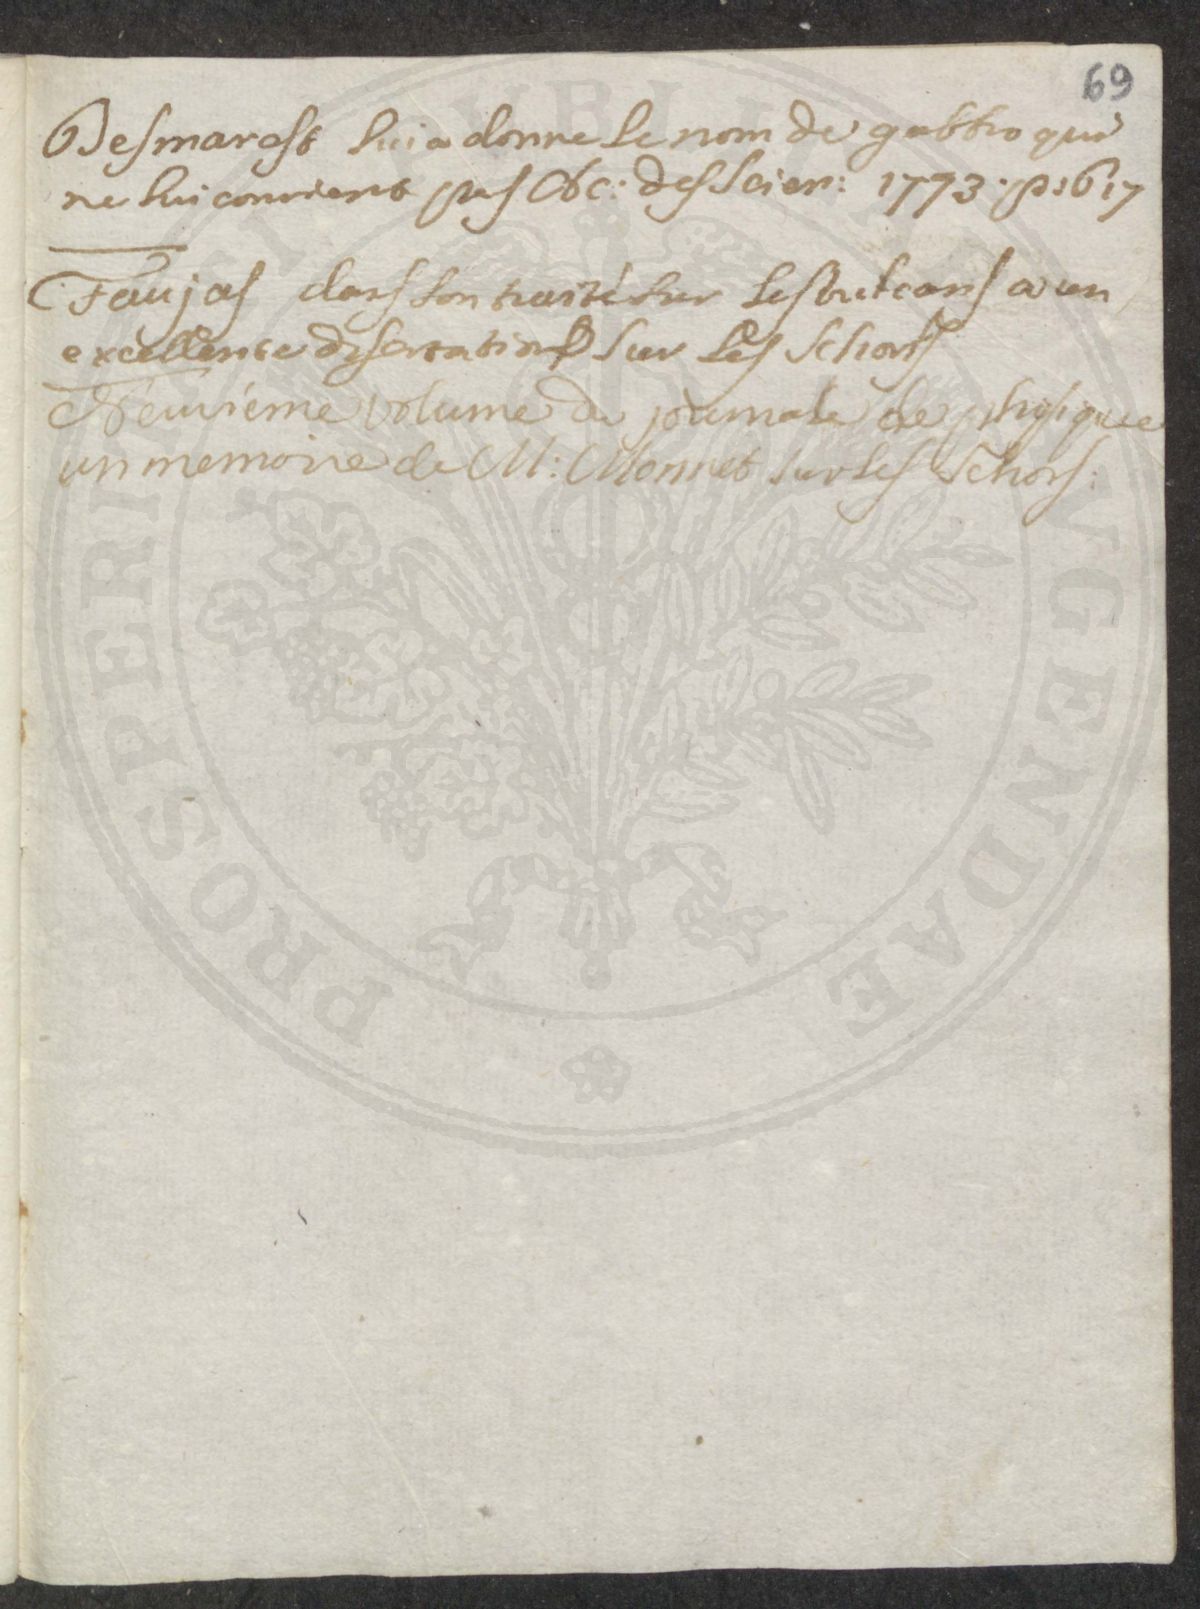 69
Desmarest lui a donne le nom de gabbro qui
ne lui convient pas Ac: des Scien: 1773. p: 617
Faujas dans son traité sur les vulcans a un
excellente disertation sur les Schorls
Neuvieme volume du journale de phisique
un memoire de M: Monnet sur les Schorls:
PROSPERI PVBLI AVGENDAE